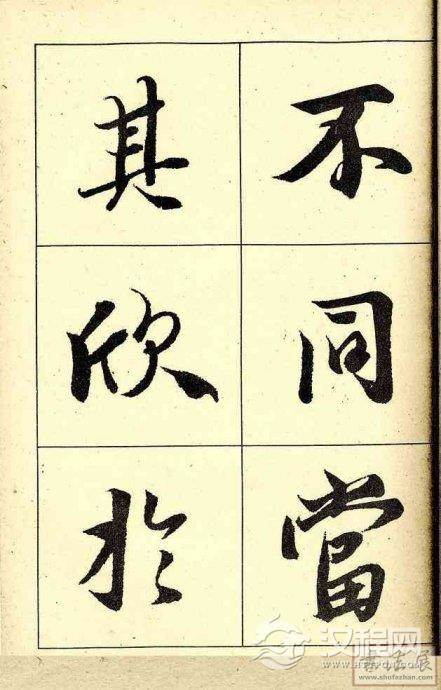 不同當
其欣於
汉程网
www.shofazhan.com